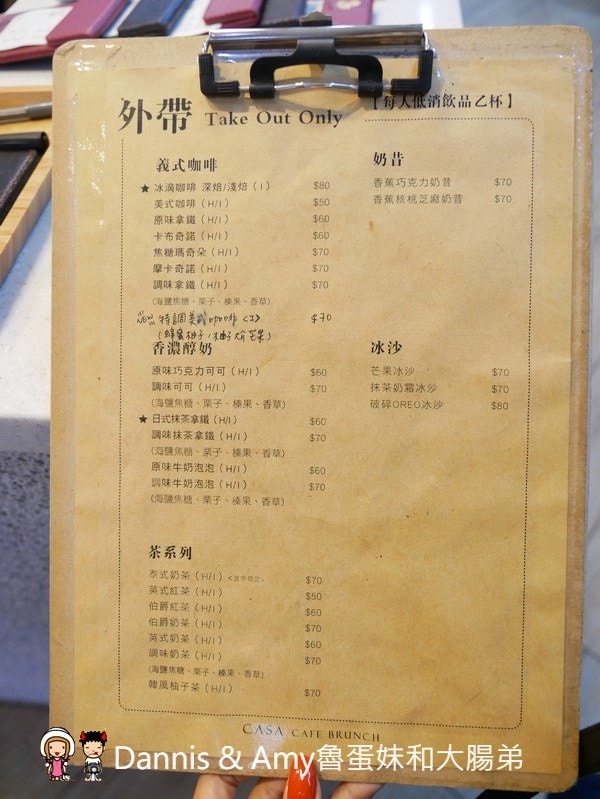 外帶 Take Out Only
【每人低消飲品乙杯】
義式咖啡
★冰滴咖啡 深焙/淺焙（I） $80
美式咖啡（H/I） $50
原味拿鐵（H/I） $60
卡布奇諾（H/I） $60
焦糖瑪奇朵（H/I） $70
摩卡奇諾（H/I） $70
調味拿鐵（H/I） $70
(海鹽焦糖、栗子、榛果、香草)
NEW 特調美式咖啡（I） $70
香濃醇奶
原味巧克力可可（H/I） $60
調味可可（H/I） $70
(海鹽焦糖、栗子、榛果、香草)
★日式抹茶拿鐵（H/I） $60
調味抹茶拿鐵（H/I） $70
(海鹽焦糖、栗子、榛果、香草)
原味牛奶泡泡（H/I） $60
調味牛奶泡泡（H/I） $70
(海鹽焦糖、栗子、榛果、香草)
茶系列
泰式奶茶（H/I）<夏季限定> $70
英式紅茶（H/I） $50
伯爵紅茶（H/I） $60
伯爵奶茶（H/I） $70
英式奶茶（H/I） $60
調味奶茶（H/I） $70
(海鹽焦糖、栗子、榛果、香草)
韓風柚子茶（H/I） $70
奶昔
香蕉巧克力奶昔 $70
香蕉核桃芝麻奶昔 $70
冰沙
芒果冰沙 $70
抹茶奶霜冰沙 $70
破碎OREO冰沙 $80
CASA CAFE BRUNCH
Dannis & Amy魯蛋妹和大腸弟